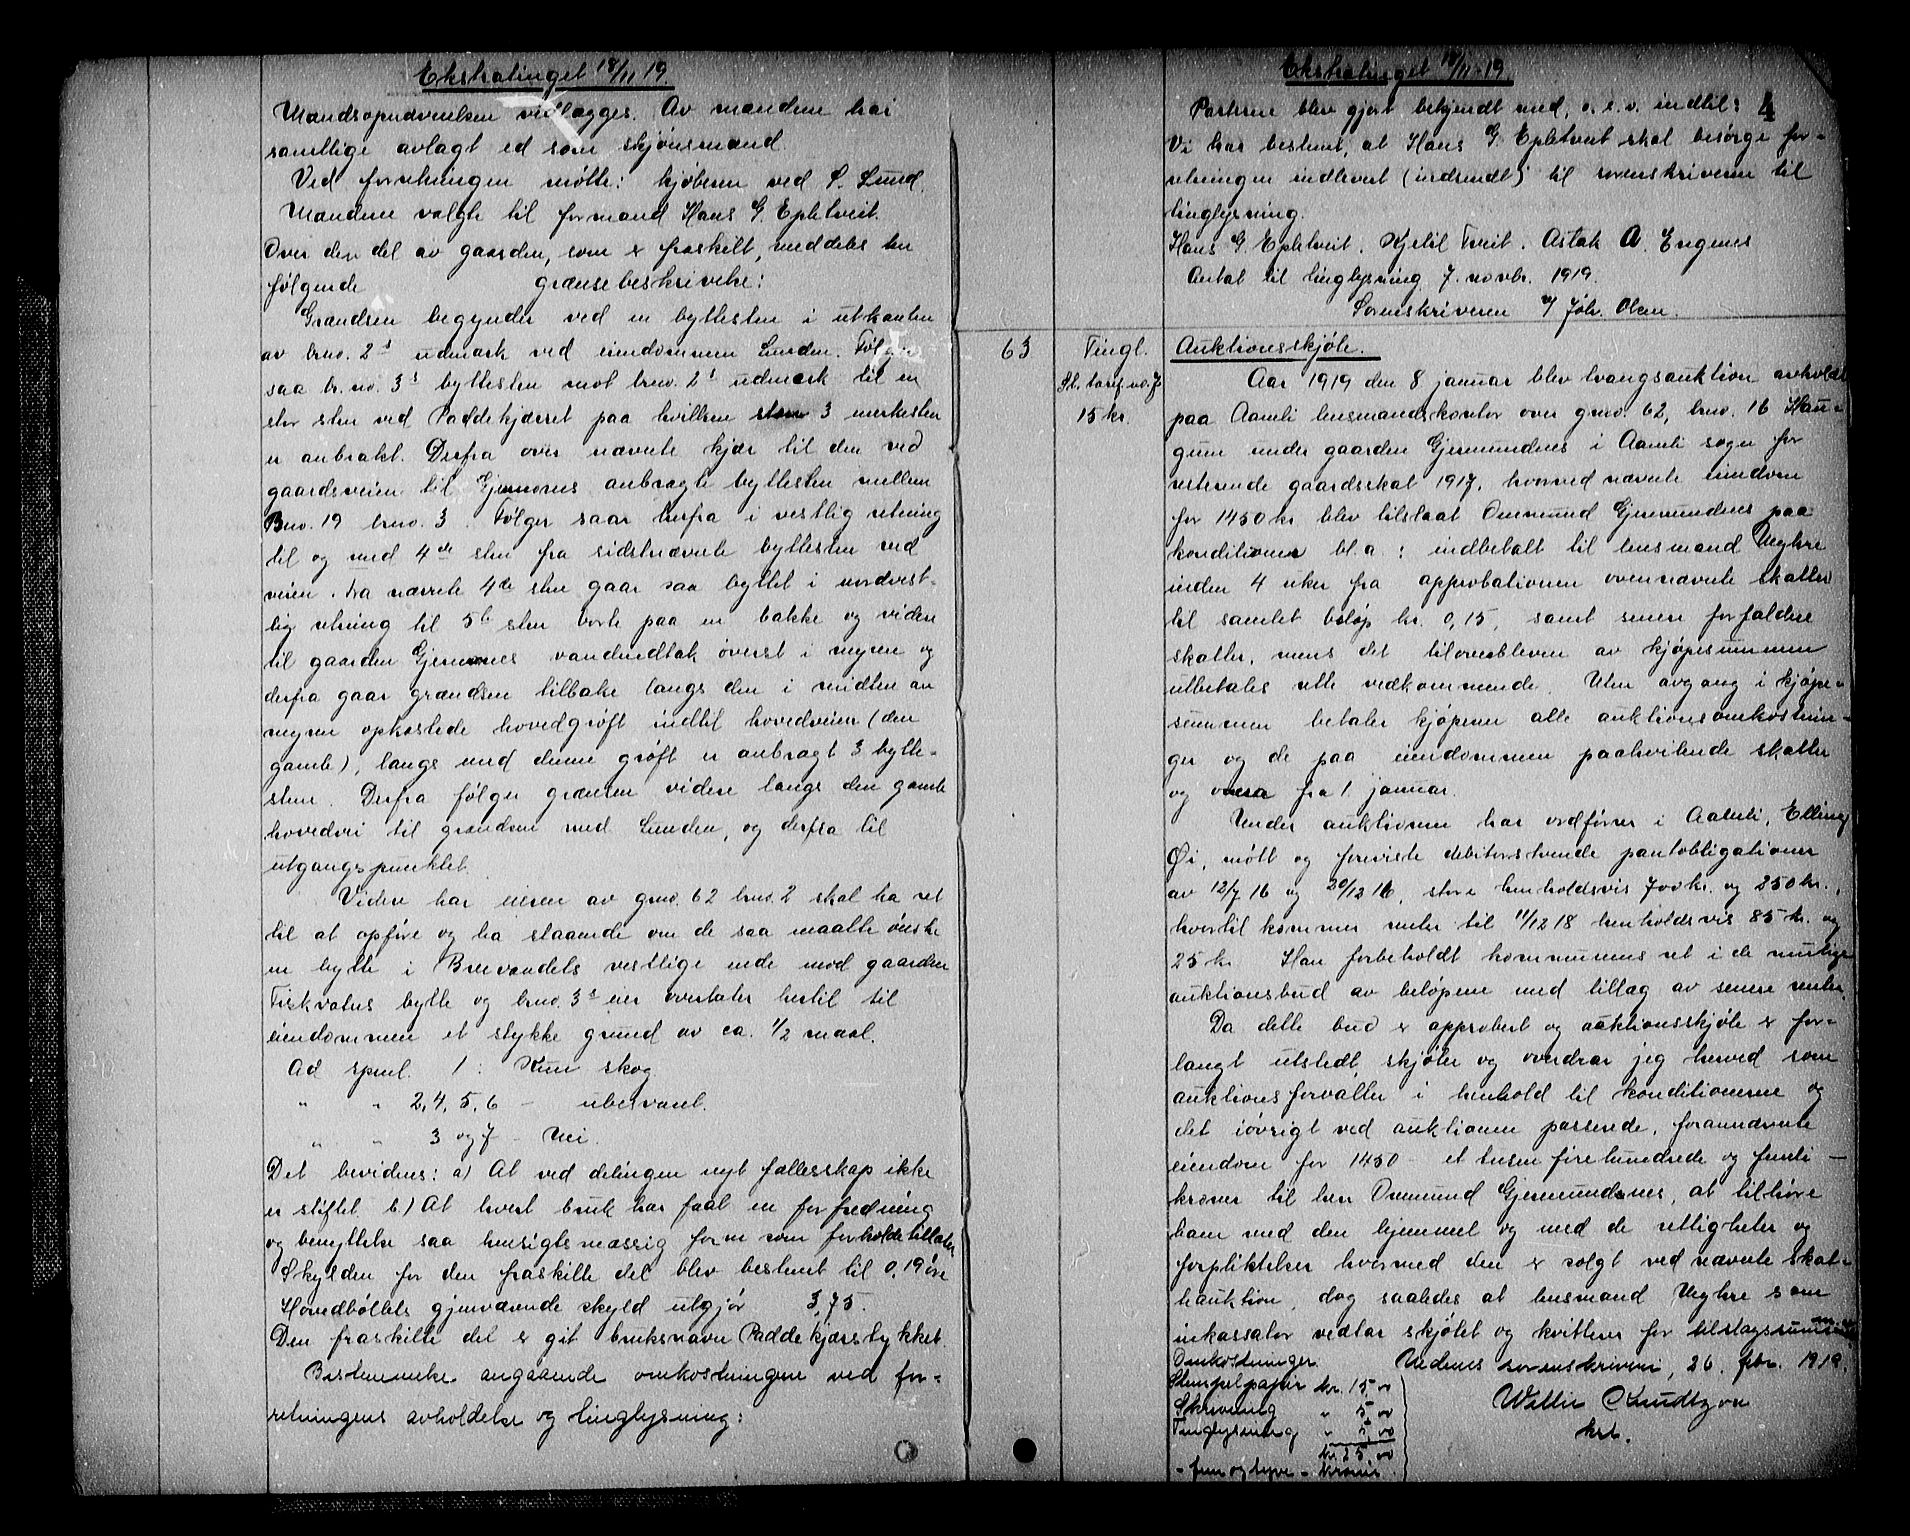 Ekstratinget 18/11 19.
Mandsopnævnelsen vedlægges. Av mændene har
samtlige avlagt ed som skjønsmænd.
Ved forretningen møtte: kjøberen ved S. Lund.
Mændene valgte til formand Hans G. Epletveit.
Over den del av gaarden, som er fraskilt, meddeles her
følgende grænsebeskrivelse:
Grændsen begynder ved en byttesten i utkanten
av brno. 2s utmark ved eiendommen Lunden. Følger
saa br.no. 3s byttesten mot brno. 2s utmark til en
stor sten ved Paddekjærret paa hvilken sten 3 merkesten
er anbrakt. Derfra over nævnte kjær til den ved
gaardsveien til Gjermones anbragte byttesten mellem
Bno. 19 brno. 3. Følger saa herfra i vestlig retning
til og med 4de sten fra sidstnævnte byttesten ved
veien. Fra nævnte 4de sten gaar saa byttet i nordvest-
lig retning til 5te sten borte paa en bakke og videre
til gaarden Gjermones vandindtak øverst i myren og
derfra gaar grændsen tilbake langs den i midten av
myren opkastede hovedgrøft indtil hovedveien (den
gamle), langs med denne grøft er anbragt 3 bytte-
sten. Derfra følger grænsen videre langs den gamle
hovedvei til grændsen med Lunden, og derfra til
utgangspunktet.
Videre har eieren av gno. 62 brno. 2 skal ha ret
til at opføre og ha staaende om de saa maatte ønske
en hytte i Breivandets vestlige ende mod gaarden
Fiskvatns bytte og brno. 3s eier overlater hertil til
eiendommen et stykke grund av ca. 1/2 maal.
Ad spml. 1: Kun skog.
" " 2, 4, 5, 6 - ubesvaret.
" " 3 og 7 - Nei.
Det bevidnes: a) At ved delingen nyt fællesskap ikke
er stiftet. b) At hvert bruk har faat en for fredning
og benyttelse saa hensigtsmæssig form som forholde tillater.
Skylden for den fraskilte del blev bestemt til 0,19 øre
Hovedbølets gjenværende skyld utgjør 3,75.
Den fraskilte del er git bruksnavn Paddekjærstykket.
Bestemmelse angaaende omkostningene ved for-
retningens avholdelse og tinglysning:
Ekstratinget 18/11-19.
4
Parterne blev gjort bekjendt med, o.s.v. indtil:
Vi har bestemt, at Hans G. Epletveit skal besørge for-
retningen indlevert (indsendt) til sorenskriveren til
tinglysning.
Hans G. Epletveit. Kjetil Tveit. Aslak A. Engenes
Antat til tinglysning 7. novbr. 1919.
Sorenskriveren e/ Johs. Olsen.
63
Tingl.
St. tarif no. 7
15 kr.
Auktionsskjøte.
Aar 1919 den 8 januar blev tvangsauktion avholdt
paa Aamli lensmandskontor over gno. 62, brno. 16 Hau-
gum under gaarden Gjermundnes i Aamli sogn for
resterende gaardsskat 1917, hvorved nævnte eiendom
for 1450 kr blev tilslaat Ommund Gjermundnes paa
konditioner bl.a: indbetalt til lensmand Neghre
inden 4 uker fra approbationen ovennævnte skatter
til samlet beløp kr. 0,15, samt senere forfaldne
skatter, mens det tiloversbleven av kjøpesummen
utbetales rette vedkommende. Uten avgang i kjøpe-
summen betaler kjøperen alle auktionsomkostnin-
ger og de paa eiendommen paahvilende skatter
og onera fra 1 januar.
Under auktionen har ordfører i Aamli, Elling
Øi, møtt og foreviste debitorstvende pantobligationer
av 12/7 16 og 30/12 16, store henholdsvis 700 kr. og 250 kr.,
hvortil kommer renter til 11/12 18 henholdsvis 85 kr. og
25 kr. Han forbeholdt kommunens ret i de mulige
auktionsbud av beløpene med tillæg av senere renter.
Da dette bud er approbert og auktionsskjøte er for-
langt utstedt, skjøter og overdrar jeg herved som
auktionsforvalter i henhold til konditionerne og
det iøvrigt ved auktionen passerede, forannævnte
eiendom for 1450 - et tusen firehundrede og femti -
kroner til herr Ommund Gjermundsnes, at tilhøre
ham med den hjemmel og med de rettigheter og
forpliktelser hvormed den er solgt ved nævnte skat-
teauktion, dog saaledes at lensmand Neghre som
inkassator vedtar skjøtet og kvitterer for tilslagssummen.
Nedenes sorenskriveri, 26. febr. 1919.
Omkostninger
Stempelpapir kr. 15,00
Skrivning " 5,00
Tinglysning " 5,00
kr. 25,00
- fem og tyve - kroner.
Wallie Knudtzon
kst.